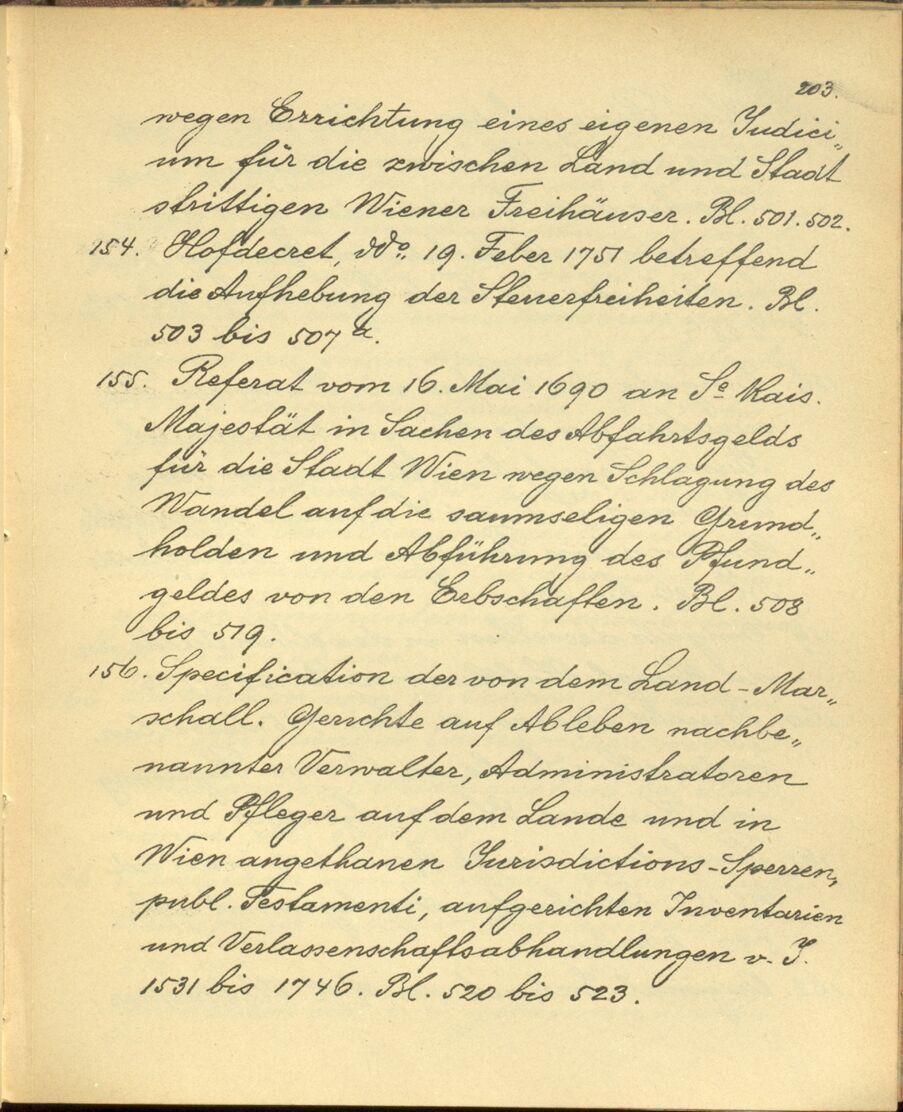 203.
wegen Errichtung eines eigenen Judici„
um für die zwischen Land und Stadt
strittigen Wiener Freihäuser. Bl. 501. 502.
154. Hofdecret, ddo. 19. Feber 1751 betreffend
die Aufhebung der Steuerfreiheiten. Bl.
503 bis 507 a.
155. Referat vom 16. Mai 1690 an Se Kais.
Majestät in Sachen des Abfahrtsgelds
für die Stadt Wien wegen Schlagung des
Wandel auf die saumseligen Grund„
holden und Abführung des Pfund„
geldes von den Erbschaften. Bl. 508
bis 519.
156. Specification der von dem Land-Mar„
schall. Gerichte auf Ableben nachbe„
nannter Verwalter, Administratoren
und Pfleger auf dem Lande und in
Wien angethanen Jurisdictions-Sperren,
publ. Testamenti, aufgerichten Inventarien
und Verlassenschaftsabhandlungen v. J.
1531 bis 1746. Bl. 520 bis 523.